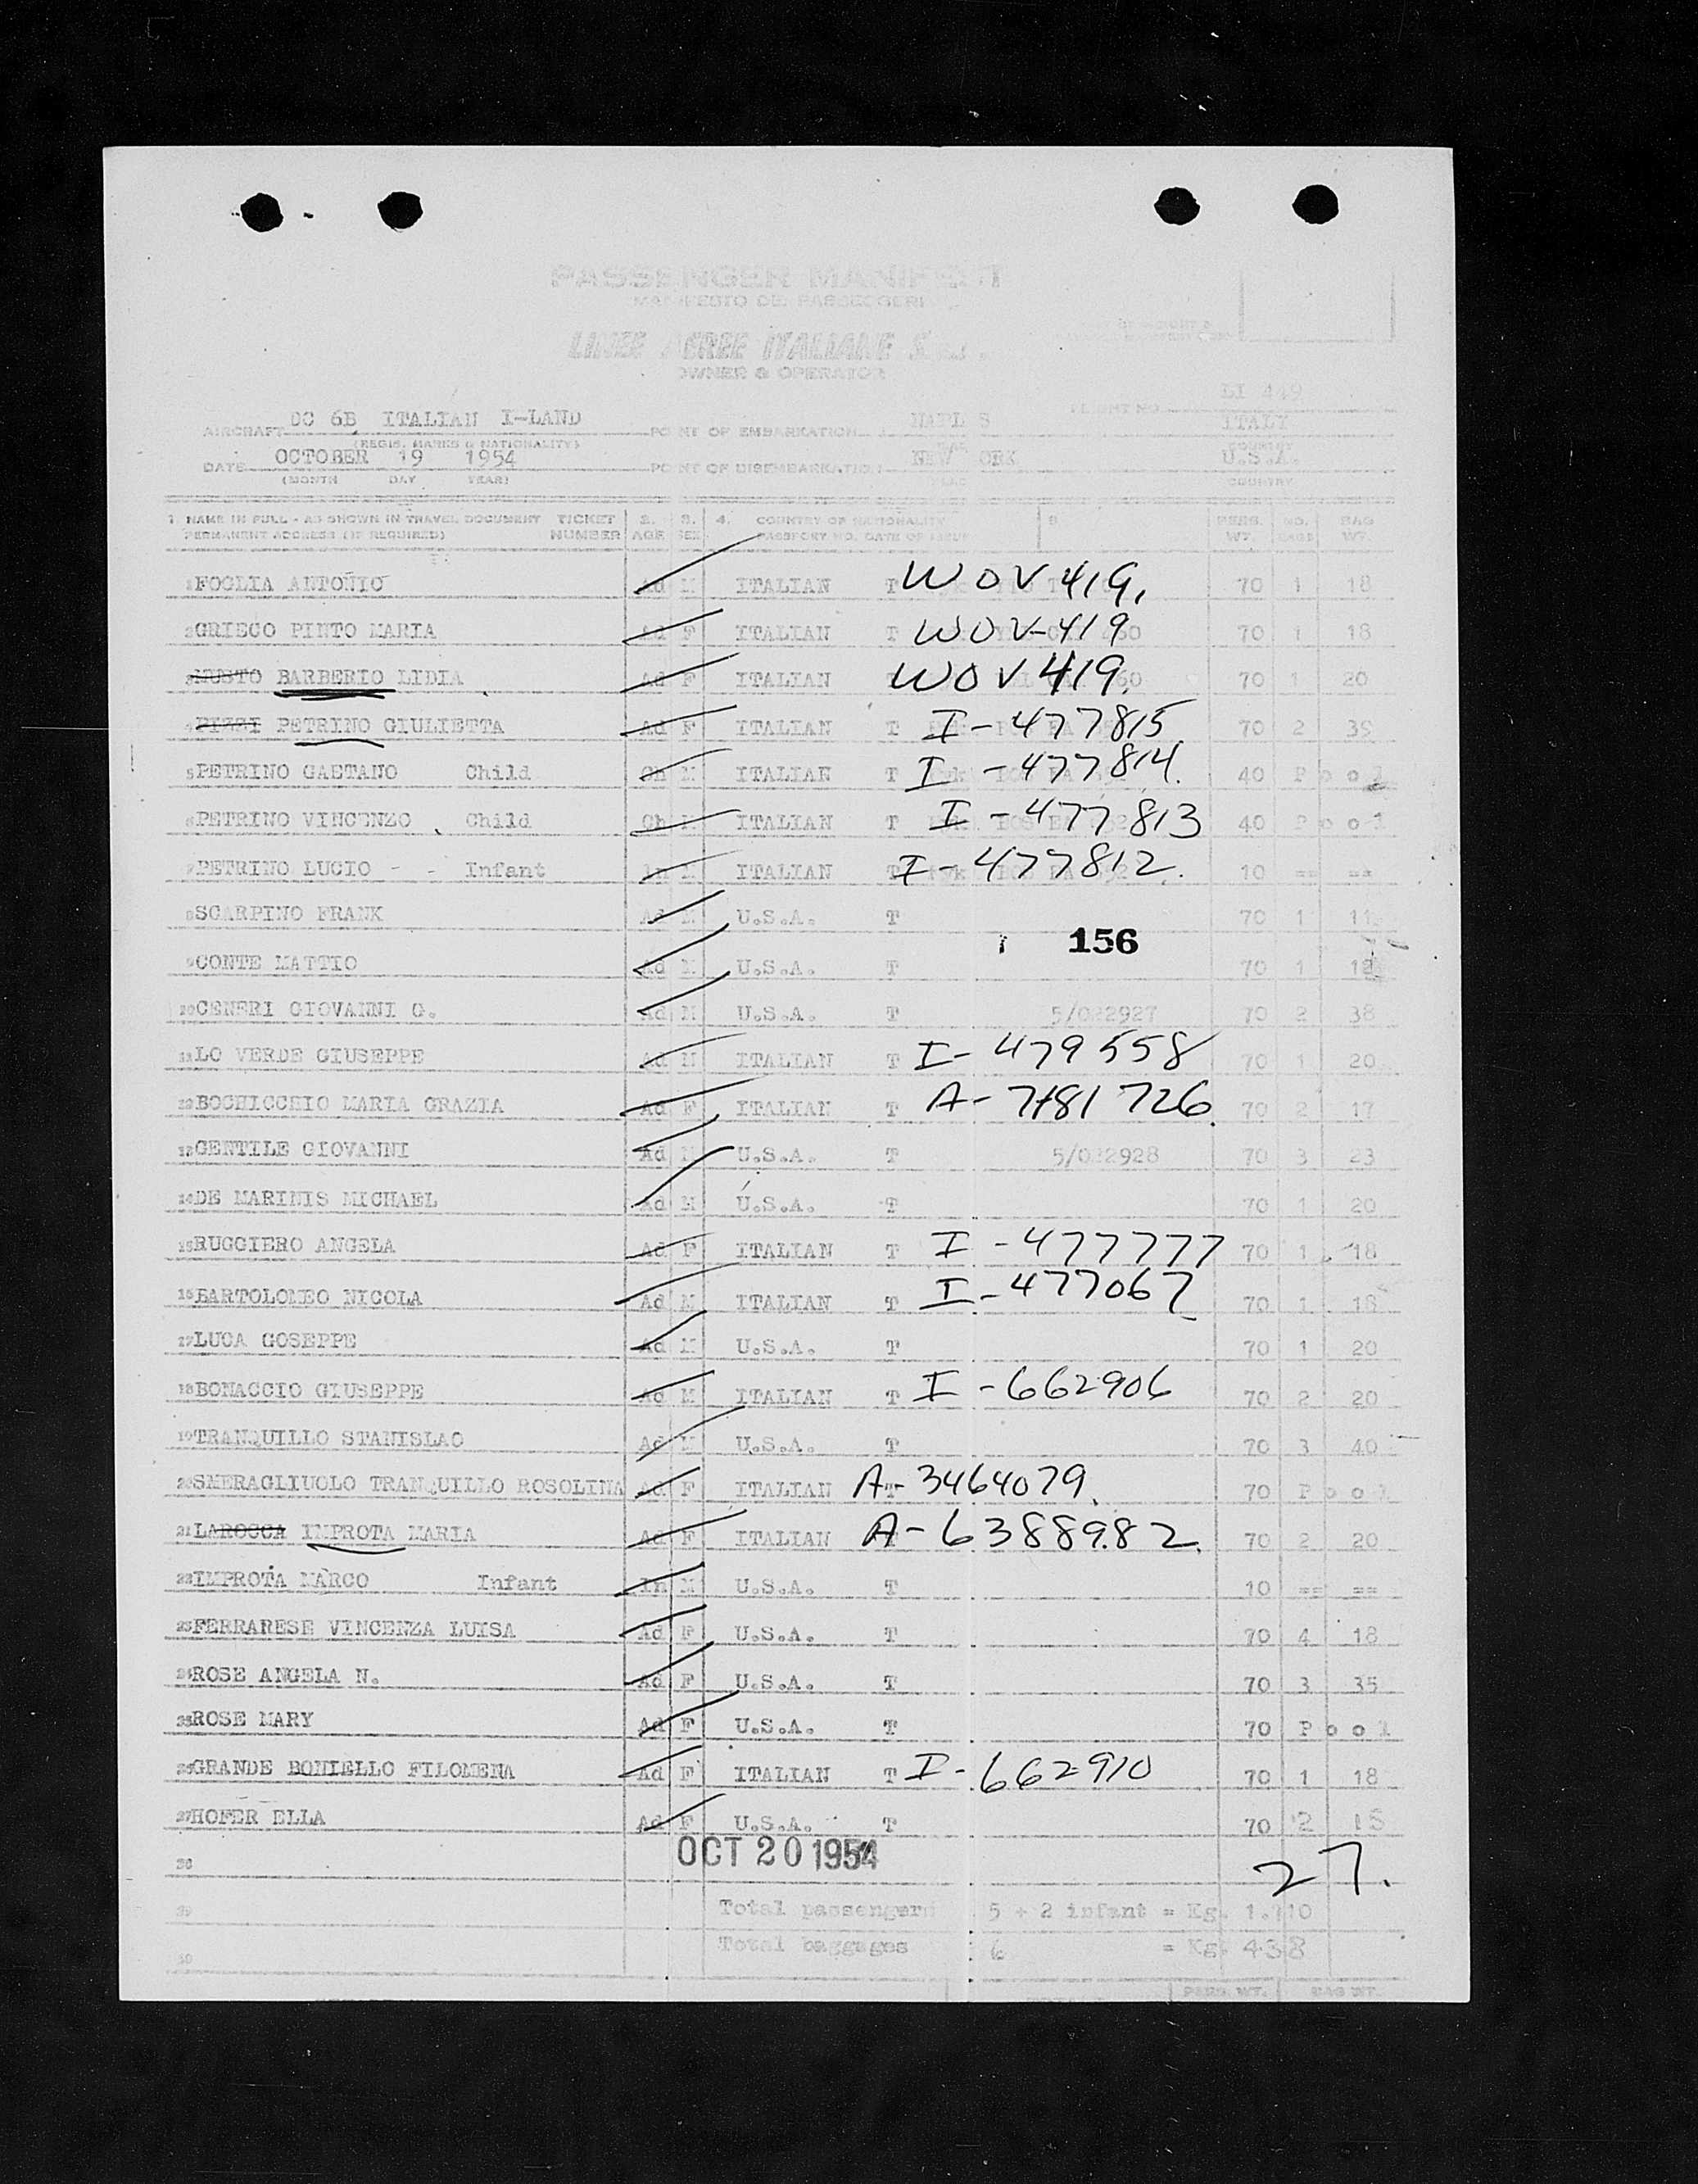 PASSENGER MANIFEST
MANIFESTO DEI PASSEGGERI
LINEE AEREE ITALIANE S.
OWNER & OPERATOR
LI 449
AIRCRAFT DC 6B ITALIAN I-LAND POINT OF EMBARKATION NAPL S FLIGHT NO. ITALY
(REGIS. MARKS & NATIONALITY) COUNTRY
DATE OCTOBER 19 1954 POINT OF DISEMBARKATION NEW ORK U.S.A.
(MONTH DAY YEAR) COUNTRY
1. NAME IN FULL - AS SHOWN IN TRAVEL DOCUMENT TICKET 2. 3. 4. COUNTRY OF NATIONALITY PERS. NO. BAG
PERMANENT ADDRESS (IF REQUIRED) NUMBER AGE SEX PASSPORT NO. DATE OF ISSUE WT. BAGS WT.
1 FOGLIA ANTONIO Ad M ITALIAN T WOV419. 70 1 18
2 GRIECO PINTO MARIA Ad F ITALIAN T WOV-419 70 1 18
3 MUSTO BARBERIO LIDIA Ad F ITALIAN T WOV419. 70 1 20
4 PIZZI PETRINO GIULIETTA Ad F ITALIAN T I-477815 70 2 35
5 PETRINO GAETANO Child Ch M ITALIAN T I-477814. 40 Pool
6 PETRINO VINCENZO Child Ch M ITALIAN T I-477813 40 Pool
7 PETRINO LUCIO - - Infant In M ITALIAN T I-477812. 10 == ==
8 SCARPINO FRANK Ad M U.S.A. T 70 1 11
156
9 CONTE MATTIO Ad M U.S.A. T 70 1 18
10 CENERI GIOVANNI G. Ad M U.S.A. T 5/022927 70 2 38
11 LO VERDE GIUSEPPE Ad M ITALIAN T I-479558 70 1 20
12 BOCHICCHIO MARIA GRAZIA Ad F ITALIAN T A-7481726. 70 2 17
13 GENTILE GIOVANNI Ad M U.S.A. T 5/022928 70 3 23
14 DE MARINIS MICHAEL Ad M U.S.A. T 70 1 20
15 RUGGIERO ANGELA Ad F ITALIAN T I-477777 70 1 18
16 BARTOLOMEO NICOLA Ad M ITALIAN T I-477067 70 1 18
17 LUCA GOSEPPE Ad M U.S.A. T 70 1 20
18 BONACCIO GIUSEPPE Ad M ITALIAN T I-662906 70 2 20
19 TRANQUILLO STANISLAO Ad M U.S.A. T 70 3 40
20 SMERAGLIUOLO TRANQUILLO ROSOLINA Ad F ITALIAN T A-3464079. 70 Pool
21 LAROCCA IMPROTA MARIA Ad F ITALIAN T A-6388982. 70 2 20
22 IMPROTA MARCO Infant In M U.S.A. T 10 == ==
23 FERRARESE VINCENZA LUISA Ad F U.S.A. T 70 4 18
24 ROSE ANGELA N. Ad F U.S.A. T 70 3 35
25 ROSE MARY Ad F U.S.A. T 70 Pool
26 GRANDE BONIELLO FILOMENA Ad F ITALIAN T I-662910 70 1 18
27 HOFER ELLA Ad F U.S.A. T 70 2 15
28 OCT 20 1954 27.
29 Total passengers 5 + 2 infant = Kg. 1.710
30 Total baggages 6 = Kg. 438
PERS. WT. BAG WT.